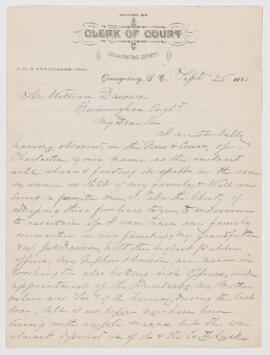 OFFICE OF
CLERK OF COURT
ORANGEBURG COUNTY.
Orangeburg, S. C. Sept 25 188
Mr William Dawson
Birmingham Engl'd
My Dear Sir
Accidentally
having observed, in the News & Courier, of
Charleston, your name, as the enclosed
will show, & finding it spelt in the same
manner as that of my family, & William
being a favorite one, I take the liberty of
dropping this few lines to you, to endeavor
to ascertain if you have any family
connection in our families, My Grandfather
held the highest public
offices, My nephew & cousin, are now in
Washington also holding high Offices, under
appointment of the President, My Brother
in law was Sec'y of the Treasury, during the last
war, All of us before war have been
living with ample means but the war
almost deprived us of it &